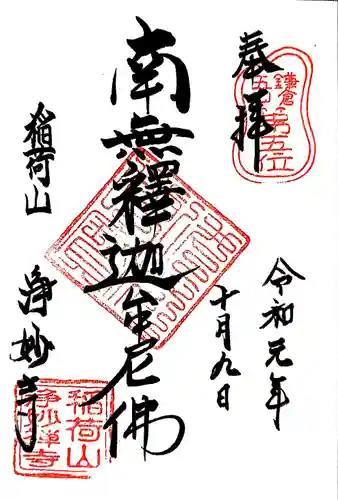 奉拝
鎌倉
五山
第五位
令和元年
十月九日
南無釋迦牟尼佛
稲荷山
浄妙寺
稲荷山
浄妙禅寺